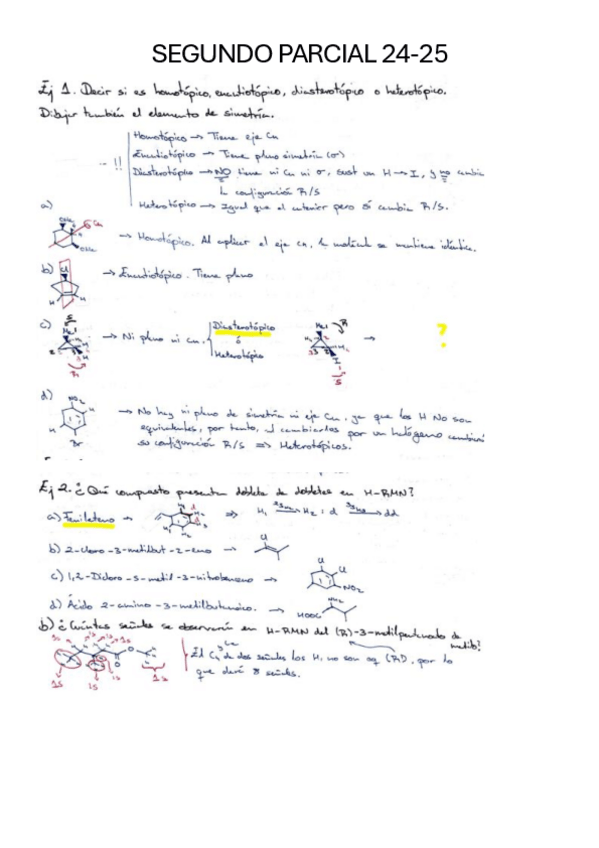 SEGUNDO PARCIAL 24-25
Ej 1. Decir si es homotópico, enantiotópico, diasterotópico o heterotópico.
Dibujar también el elemento de simetría.
Homotópico → Tiene eje Cn
--!! Enantiotópico → Tiene plano simetría (σ)
Diasterotópico → NO tiene ni Cn ni σ, sust un H → I, y no cambia
la configuración R/S
Heterotópico → Igual que el anterior pero sí cambia R/S.
a)
→ Homotópico. Al aplicar el eje Cn, la molécula se mantiene idéntica.
b)
→ Enantiotópico. Tiene plano
c)
→ Ni plano ni Cn. Diasterotópico
ó
Heterotópico
→ ?
d)
NO₂
Br
→ No hay ni plano de simetría ni eje Cn, ya que los H No son
equivalentes, por tanto, al cambiarlos por un halógeno cambiará
su configuración R/S ⇒ Heterotópicos.
Ej 2. ¿Qué compuesto presentan doblete de dobletes en H-RMN?
a) Fenileteno →
b) 2-cloro-3-metilbut-2-eno →
c) 1,2-Dicloro-5-metil-3-nitrobenceno →
d) Ácido 2-amino-3-metilbutanoico. →
b) ¿Cuántas señales se observarán en H-RMN del (R)-3-metilpentanoato de
metilo?
El C₄ da dos señales los H, no son eq (R), por lo
que dará 8 señales.